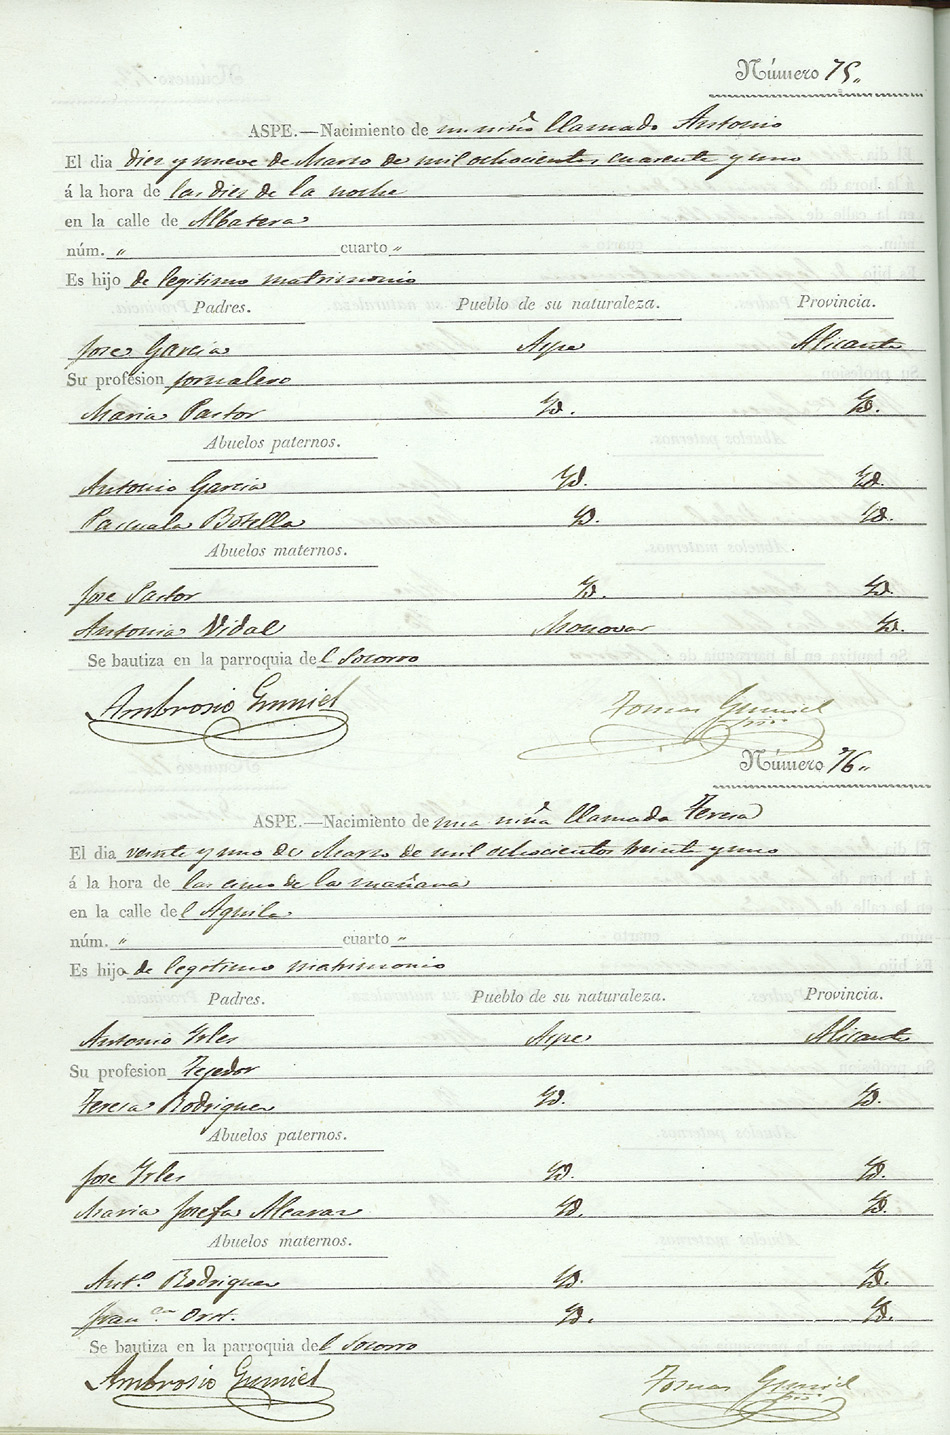 Número 75"
ASPE.—Nacimiento de un niño llamado Antonio
El dia diez y nueve de Marzo de mil ochocientos cuarenta y uno
á la hora de las diez de la noche
en la calle de Albatera
núm. " cuarto "
Es hijo de legitimo matrimonio
Padres. Pueblo de su naturaleza. Provincia.
Jose Garcia Aspe Alicante
Su profesion jornalero
Maria Pastor Yd. Yd.
Abuelos paternos.
Antonio Garcia Yd. Yd.
Pascuala Botella Yd. Yd.
Abuelos maternos.
Jose Pastor Yd. Yd.
Antonia Vidal Monovar Yd.
Se bautiza en la parroquia del Socorro
Ambrosio Gumiel Tomas Gumiel
Número 76"
ASPE.—Nacimiento de una niña llamada Teresa
El dia veinte y uno de Marzo de mil ochocientos treinta y uno
á la hora de las cinco de la mañana
en la calle del Aguila
núm. " cuarto "
Es hija de legitimo matrimonio
Padres. Pueblo de su naturaleza. Provincia.
Antonio Yrles Aspe Alicante
Su profesion Tejedor
Teresa Rodriguez Yd. Yd.
Abuelos paternos.
Jose Yrles Yd. Yd.
Maria Josefa Alcaraz Yd. Yd.
Abuelos maternos.
Ant.o Rodriguez Yd. Yd.
Fran.ca Yd. Yd.
Se bautiza en la parroquia del Socorro
Ambrosio Gumiel Tomas Gumiel